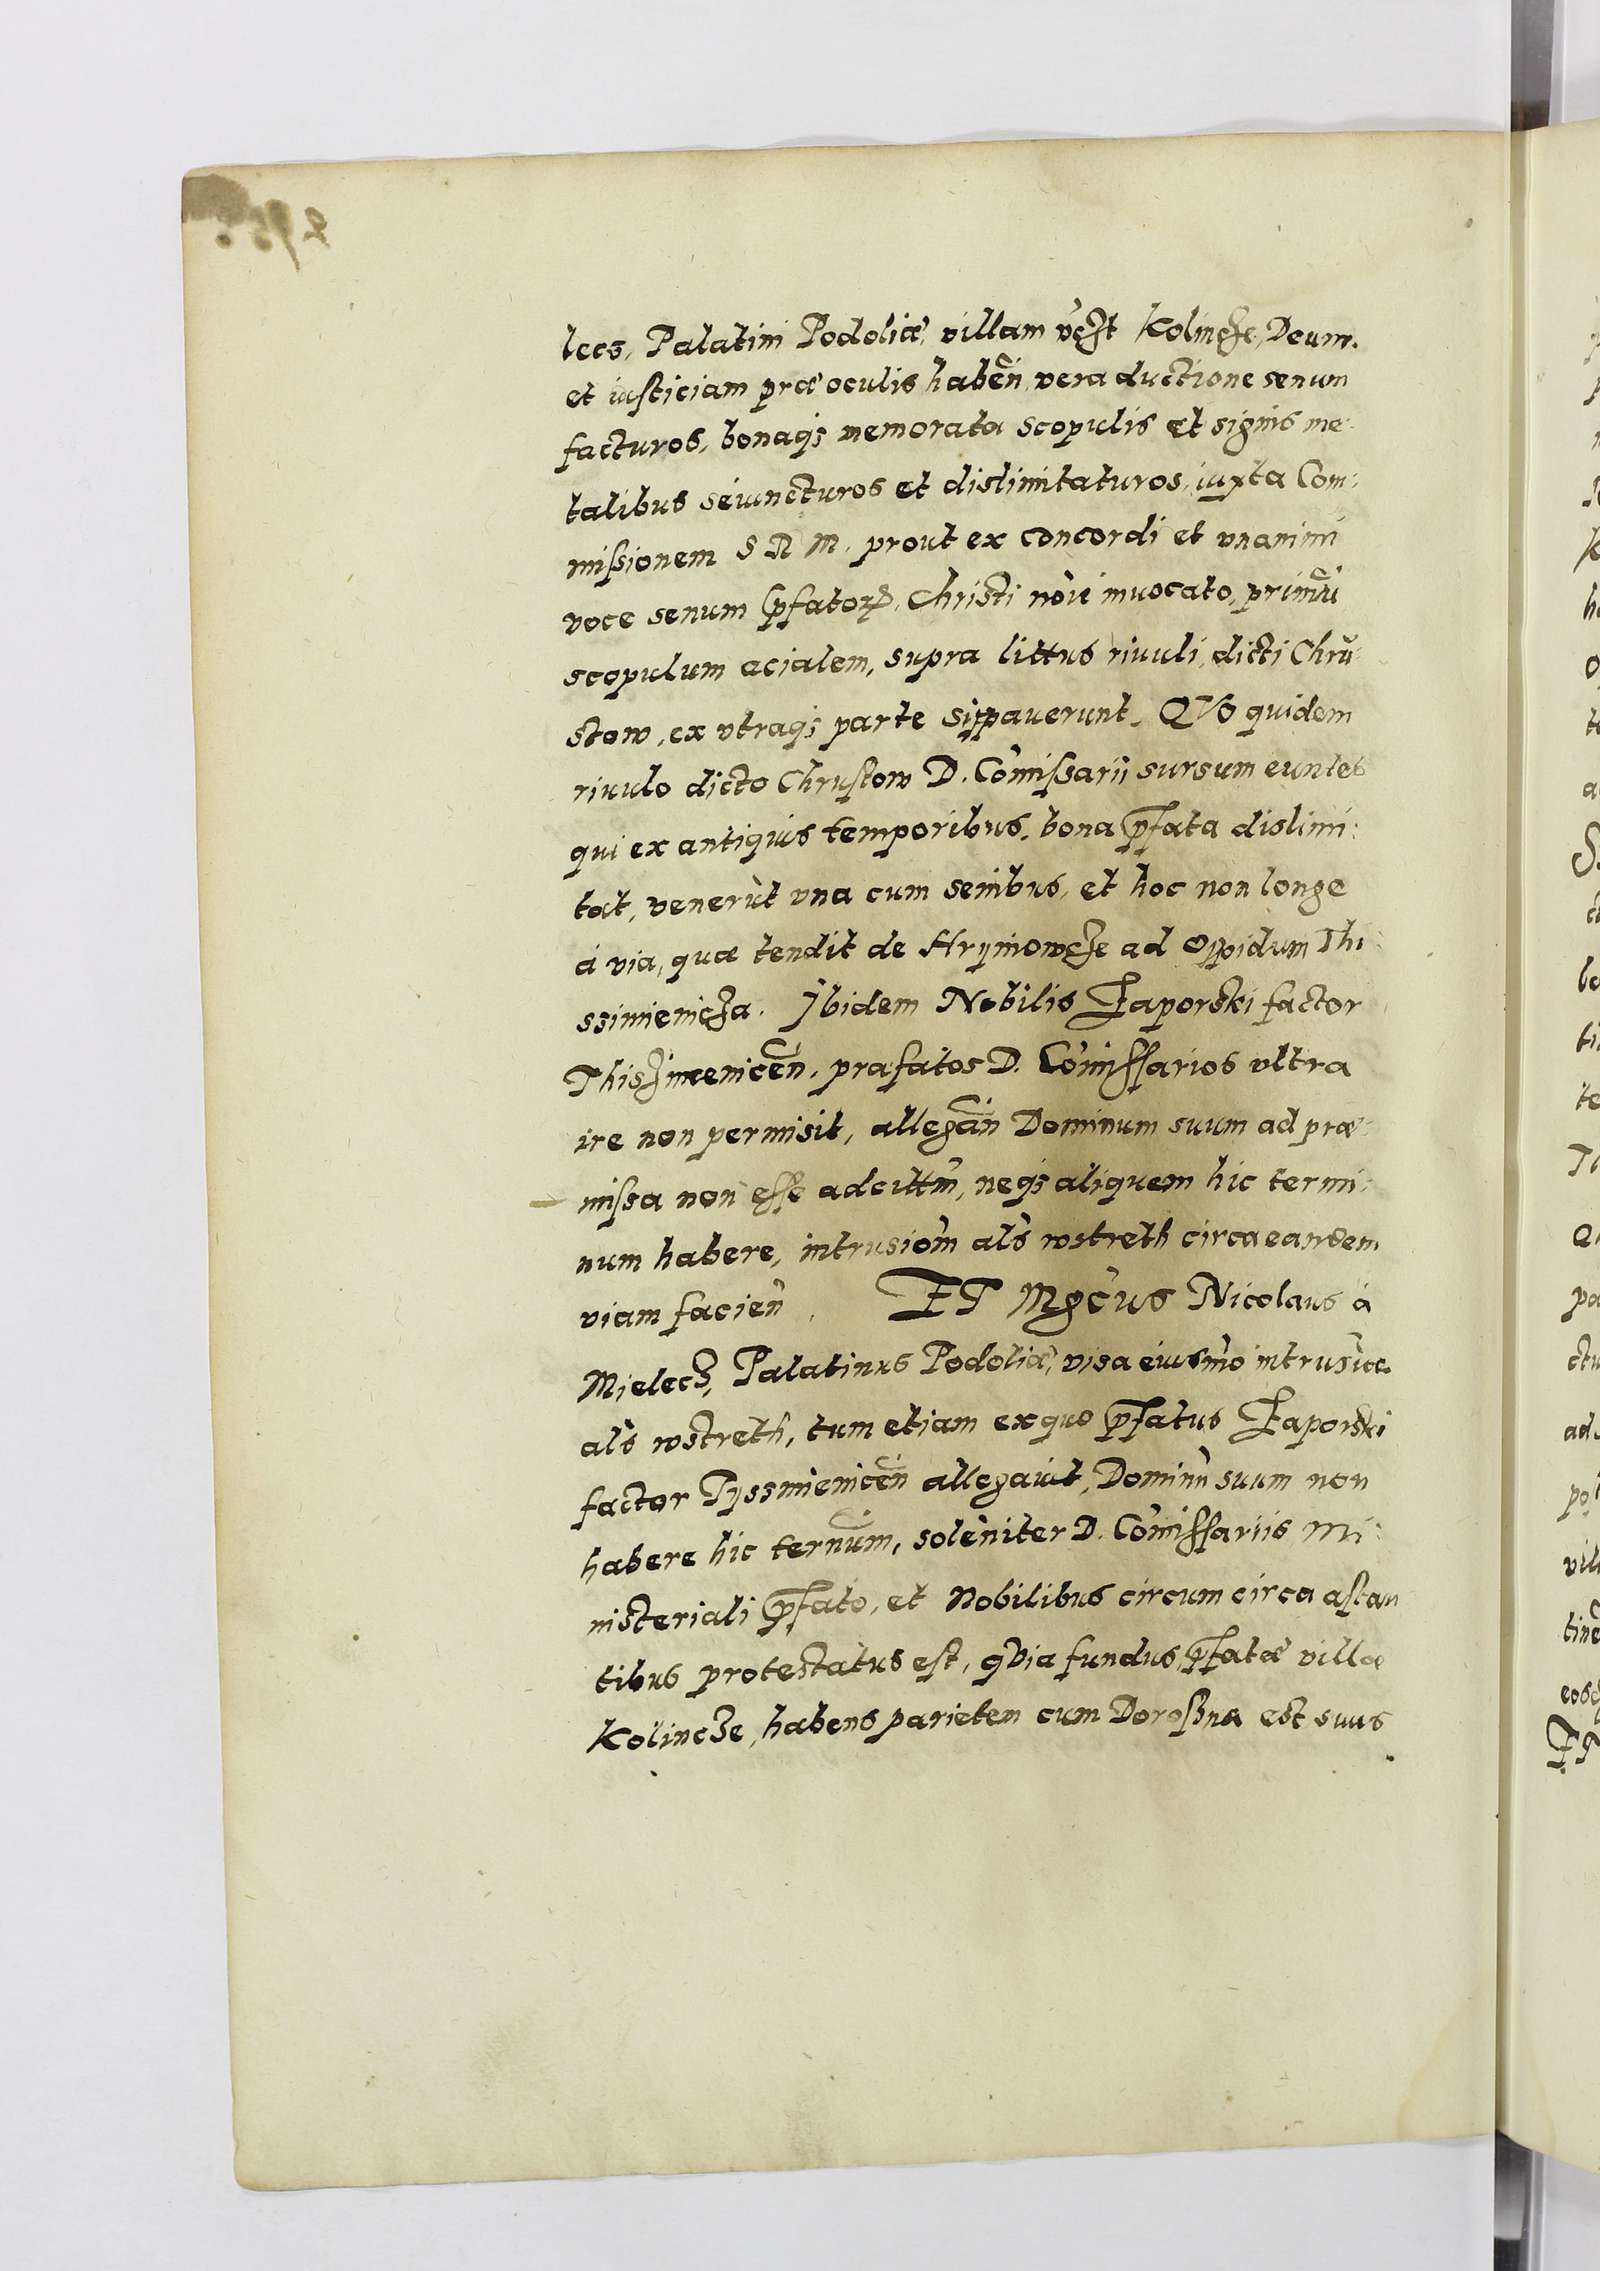 lecz, Palatini Podoliæ, villam v̄czt Kolincze, Deum.
et iusticiam præ oculis habeñ, vera ductione senum
facturos, bonaqȝ memorata scopulis et signis me-
talibus seiuncturos et dislimitaturos, iuxta Com:
missionem S R M. prout ex concordi et vnanimi
voce senum p̄fatoꝝ, Christi nōie inuocato, primū
scopulum acialem, supra littus riuuli, dicti Chru-
stow, ex vtraqȝ parte sippauerunt. QVO quidem
riuulo dicto Chrustow D. Com̄issarij sursum euntes
qui ex antiquis temporibus, bona p̄fata dislimi:
tat, venerūt vna cum senibus, et hoc non longe
à via, quæ tendit de Hrÿnowcze ad oppidum Thi
ssimienicza. Ibidem Nobilis Zaporski factor
Thiszimeniceñ. præfatos D. Com̄issarios vltra
ire non permisit, allegañ Dominum suum ad præ:
missa non esse adcittm̄, neqȝ aliquem hic termi:
num habere, intrusiom̄ als̄ wstreth circa eandem
viam facieñ. ET Mgc̄us Nicolaus à
Mielecz, Palatinus Podoliæ, visa eiusm̄o intrusioe
als̄ wstreth, tum etiam ex quo p̄fatus Zaporski
factor Tyssmieniceñ allegauit, Dominū suum non
habere hic ternūm, solēniter D. Com̄issariis Mi:
nisteriali p̄fato, et Nobilibus circum circa astan
tibus protestatus est, qVia fundus p̄fatæ villæ
Kolincze, habens parietem cum Doroszna est suus